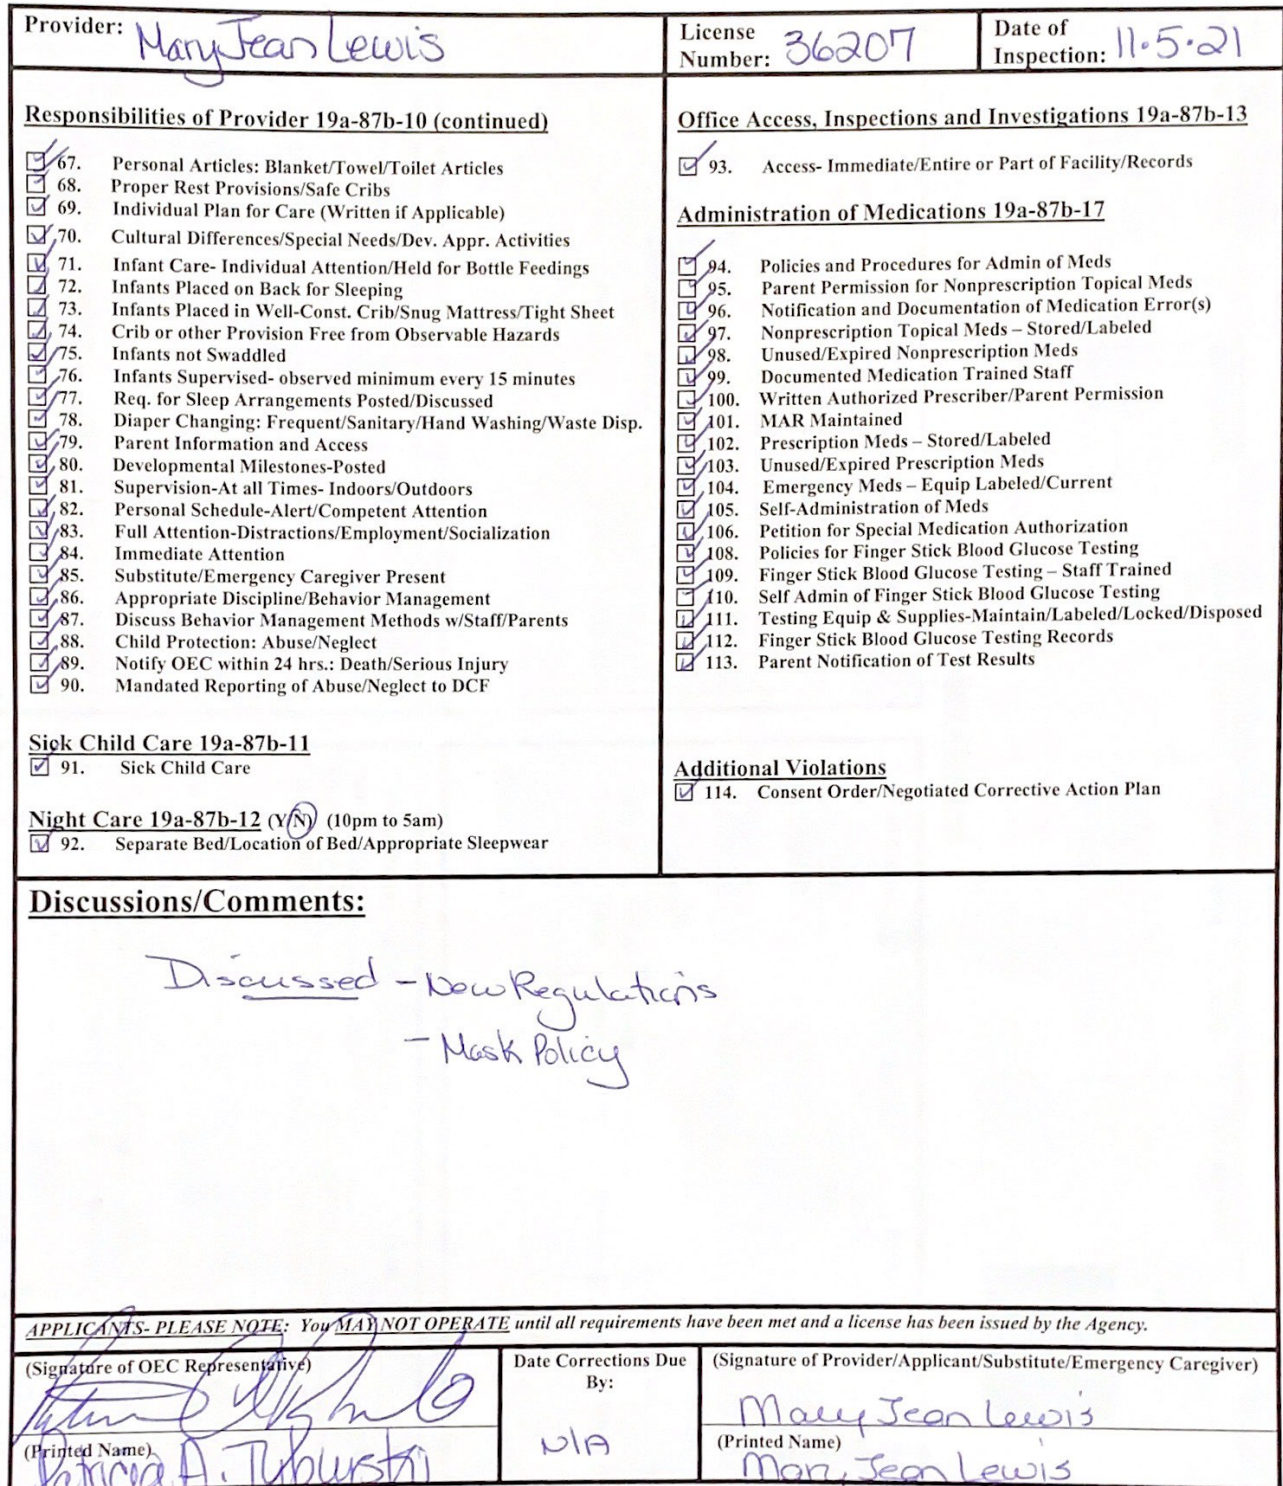 Provider: Mary Jean Lewis
License Number: 36207
Date of Inspection: 11.5.21
Responsibilities of Provider 19a-87b-10 (continued)
67. Personal Articles: Blanket/Towel/Toilet Articles
68. Proper Rest Provisions/Safe Cribs
69. Individual Plan for Care (Written if Applicable)
70. Cultural Differences/Special Needs/Dev. Appr. Activities
71. Infant Care- Individual Attention/Held for Bottle Feedings
72. Infants Placed on Back for Sleeping
73. Infants Placed in Well-Const. Crib/Snug Mattress/Tight Sheet
74. Crib or other Provision Free from Observable Hazards
75. Infants not Swaddled
76. Infants Supervised- observed minimum every 15 minutes
77. Req. for Sleep Arrangements Posted/Discussed
78. Diaper Changing: Frequent/Sanitary/Hand Washing/Waste Disp.
79. Parent Information and Access
80. Developmental Milestones-Posted
81. Supervision-At all Times- Indoors/Outdoors
82. Personal Schedule-Alert/Competent Attention
83. Full Attention-Distractions/Employment/Socialization
84. Immediate Attention
85. Substitute/Emergency Caregiver Present
86. Appropriate Discipline/Behavior Management
87. Discuss Behavior Management Methods w/Staff/Parents
88. Child Protection: Abuse/Neglect
89. Notify OEC within 24 hrs.: Death/Serious Injury
90. Mandated Reporting of Abuse/Neglect to DCF
Sick Child Care 19a-87b-11
91. Sick Child Care
Night Care 19a-87b-12 (Y/N) (10pm to 5am)
92. Separate Bed/Location of Bed/Appropriate Sleepwear
Office Access, Inspections and Investigations 19a-87b-13
93. Access- Immediate/Entire or Part of Facility/Records
Administration of Medications 19a-87b-17
94. Policies and Procedures for Admin of Meds
95. Parent Permission for Nonprescription Topical Meds
96. Notification and Documentation of Medication Error(s)
97. Nonprescription Topical Meds – Stored/Labeled
98. Unused/Expired Nonprescription Meds
99. Documented Medication Trained Staff
100. Written Authorized Prescriber/Parent Permission
101. MAR Maintained
102. Prescription Meds – Stored/Labeled
103. Unused/Expired Prescription Meds
104. Emergency Meds – Equip Labeled/Current
105. Self-Administration of Meds
106. Petition for Special Medication Authorization
108. Policies for Finger Stick Blood Glucose Testing
109. Finger Stick Blood Glucose Testing – Staff Trained
110. Self Admin of Finger Stick Blood Glucose Testing
111. Testing Equip & Supplies-Maintain/Labeled/Locked/Disposed
112. Finger Stick Blood Glucose Testing Records
113. Parent Notification of Test Results
Additional Violations
114. Consent Order/Negotiated Corrective Action Plan
Discussions/Comments:
Discussed - New Regulations
- Mask Policy
APPLICANTS- PLEASE NOTE: You MAY NOT OPERATE until all requirements have been met and a license has been issued by the Agency.
(Signature of OEC Representative)
(Printed Name)
Patricia A.
Date Corrections Due
By:
N/A
(Signature of Provider/Applicant/Substitute/Emergency Caregiver)
Mary Jean Lewis
(Printed Name)
Mary Jean Lewis